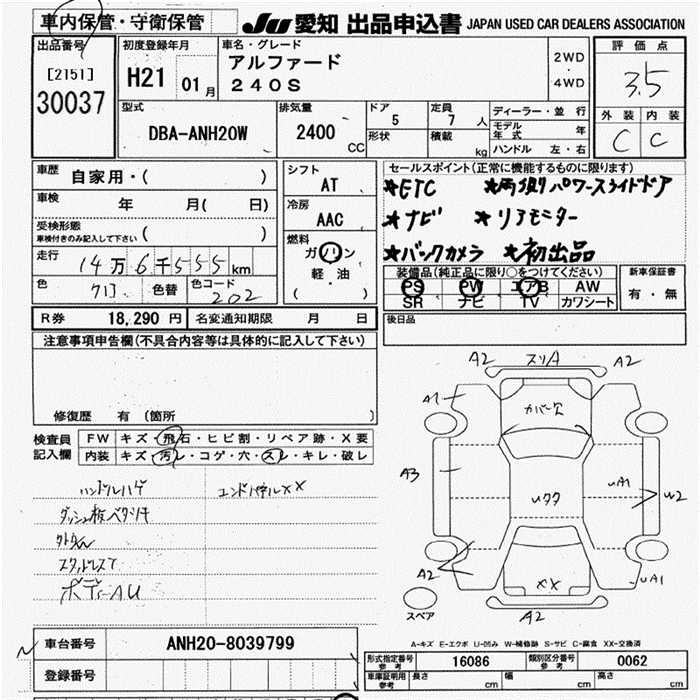 車内保管・守衛保管
JU 愛知 出品申込書 JAPAN USED CAR DEALERS ASSOCIATION
出品番号
[2151]
30037
初度登録年月
H21 01月
車名・グレード
アルファード
240S
2WD
・
4WD
評価点
3.5
外装 内装
C C
型式
DBA-ANH20W
排気量
2400 CC
ドア
5
定員
7 人
形状
積載
kg
ディーラー・並行
モデル年式 年
ハンドル 左・右
車歴
自家用・( )
車検 年 月( 日)
受検形態
車検付きのみ記入して下さい ( )
走行
14万6千555km
色 色替 色コード
202
シフト
AT
冷房
AAC
燃料
ガソリン
軽・油
( )
セールスポイント(正常に機能するものに限ります)
★ETC ★両側パワースライドドア
★ナビ ★リアモニター
★バックカメラ ★初出品
装備品(純正品に限り○をつけてください)
PS PW エアB AW
SR ナビ TV カワシート
新車保証書
有・無
R券 18,290 円 名変通知期限 月 日
後日品
注意事項申告欄(不具合内容等は具体的に記入して下さい)
修復歴 有(箇所 )
検査員記入欄
FW キズ・飛石・ヒビ割・リペア跡・X要
内装 キズ・汚レ・コゲ・穴・スレ・キレ・破レ
ハンドルハゲ エンドパネルXX
ダッシュ板ベタツキ
スタッドレスT
ボディーAU
A2 スリA A2
A1
カバー欠
A3
Uクタ
uA1
W2
A2
XX
uA1
A2
スペア
A-キズ E-エクボ U-凹み W-補修跡 S-サビ C-腐食 XX-交換済
車台番号 ANH20-8039799
登録番号
形式指定番号 参考 16086 類別区分番号 参考 0062
車庫証明記載用 参考 長さ cm 幅 cm 高さ cm